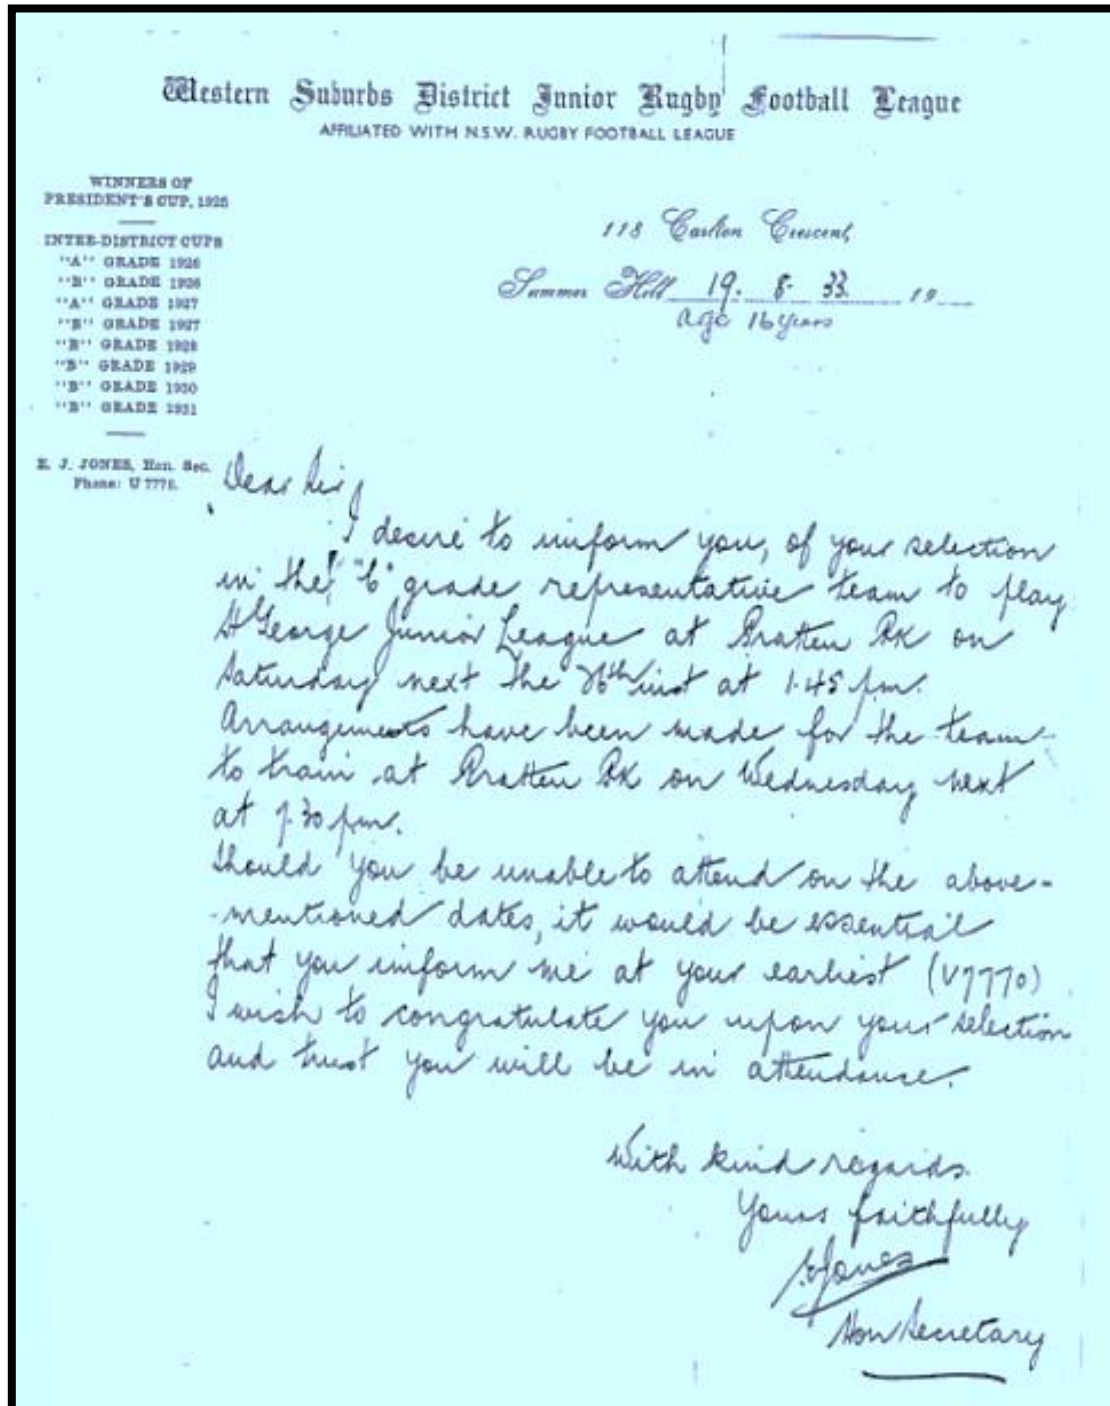 Western Suburbs District Junior Rugby Football League
AFFILIATED WITH N.S.W. RUGBY FOOTBALL LEAGUE
WINNERS OF
PRESIDENT'S CUP, 1925
INTER-DISTRICT CUPS
"A" GRADE 1926
"B" GRADE 1926
"A" GRADE 1927
"B" GRADE 1927
"B" GRADE 1928
"B" GRADE 1929
"B" GRADE 1930
"B" GRADE 1931
E. J. JONES, Hon. Sec.
Phone: U 7770.
118 Carlton Crescent,
Summer Hill 19. 8. 33. 19
age 16 years
Dear Sir,
I desire to inform you, of your selection
in the "C" grade representative team to play
St George Junior League at Pratten Pk on
Saturday next the 26th inst at 1.45 p.m.
Arrangements have been made for the team
to train at Pratten Pk on Wednesday next
at 7.30 p.m.
Should you be unable to attend on the above-
-mentioned dates, it would be essential
that you inform me at your earliest (U7770)
I wish to congratulate you upon your selection
and trust you will be in attendance.
With kind regards.
Yours faithfully
EJJones
Hon Secretary